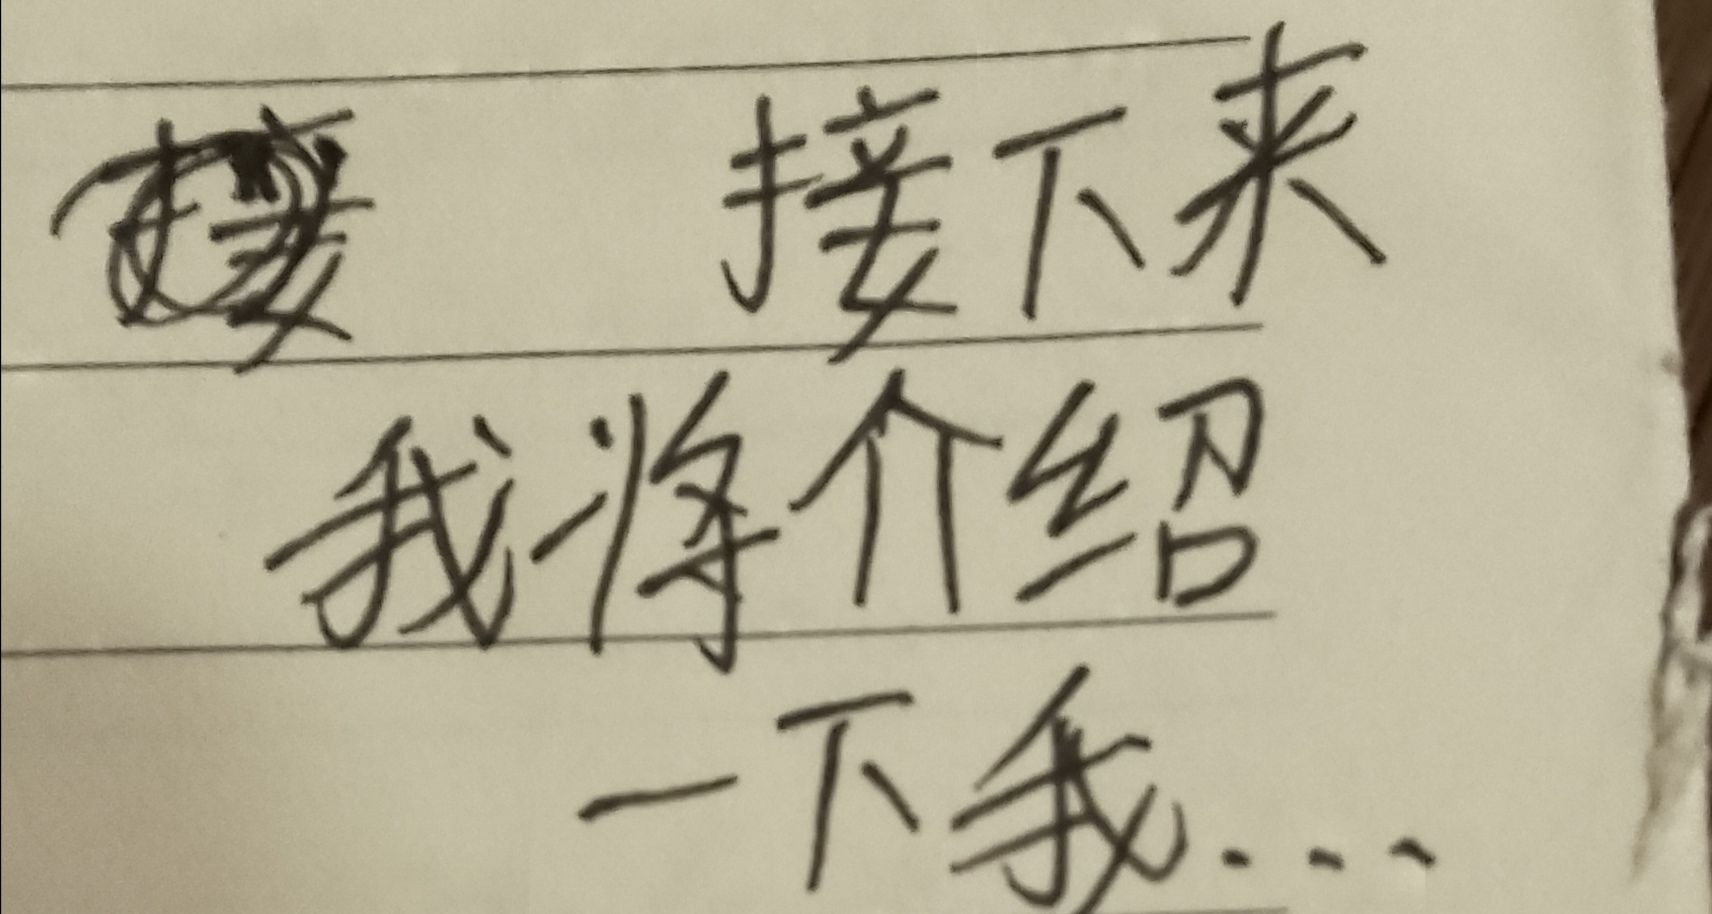 接下来
我将介绍
一下我...